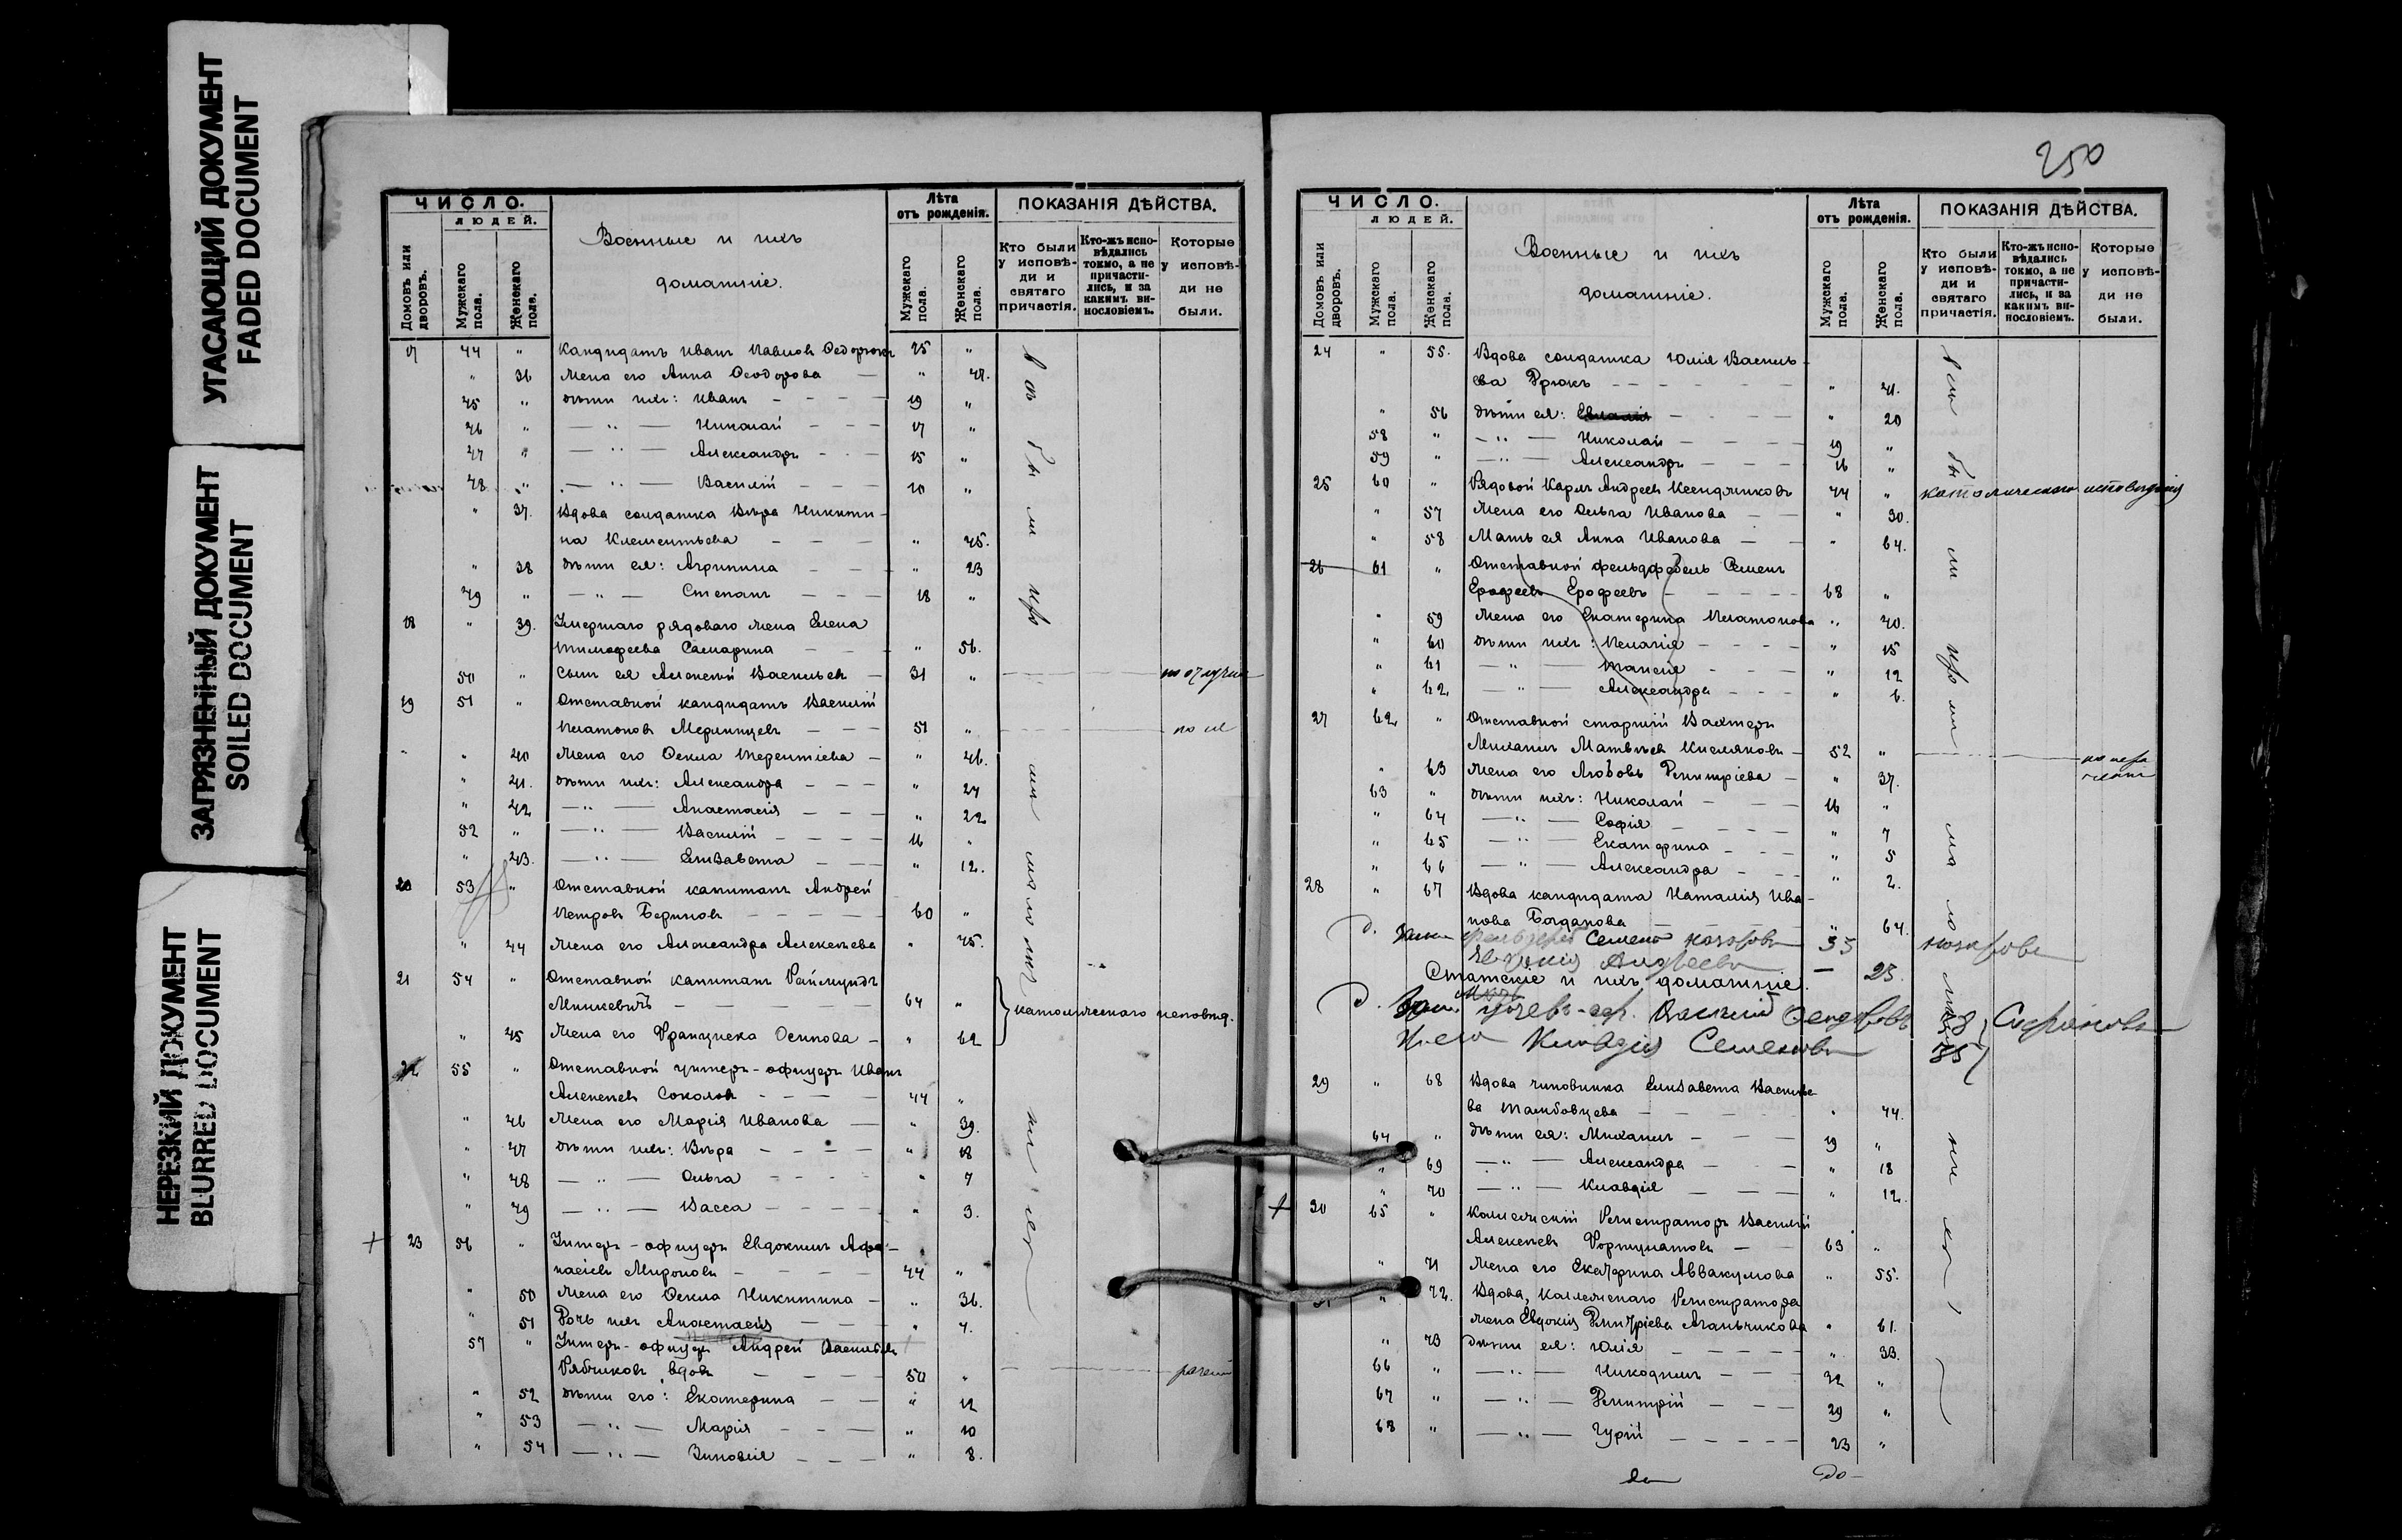 УГАСАЮЩИЙ ДОКУМЕНТ
FADED DOCUMENT
ЗАГРЯЗНЕННЫЙ ДОКУМЕНТ
SOILED DOCUMENT
НЕРЕЗКИЙ ДОКУМЕНТ
BLURRED DOCUMENT
ЧИСЛО.
людей.
Домовъ или дворовъ.
Мужскаго пола.
Женскаго пола.
Военные и ихъ
домашніе.
Лѣта
отъ рожденія.
Мужскаго пола.
Женскаго пола.
ПОКАЗАНІЯ ДѢЙСТВА.
Кто были у исповѣди и святаго причастія.
Кто-жъ исповѣдались токмо, а не причастились, и за какимъ винословіемъ.
Которые у исповѣди не были.
17 44 " Кандидатъ Иванъ Павловъ 45 "
" 36 Жена его Анна Ѳеодорова — " 41.
45 " дѣти ихъ: Иванъ - - - 19 "
46 " — " — Николай - - - 17 "
47 " — " — Александръ - - - 15 "
48 " — " — Василій - - - 10 "
" 37. Вдова солдатка Вѣра Никити-
на Клементьева - - - " 45.
" 38 дѣти ея: Агрипина - - - " 23
49 " — " — Степанъ - - - 18 "
18 " 39. Умершаго рядоваго жена Елена
Тимофеева Самарина - - - " 56.
50 " Сынъ ея Алексѣй Васильевъ — 31 "
19 51 " Отставной кандидатъ Василій
Платоновъ Меринцевъ - - - 51 "
" 40 Жена его Ѳекла Терентіева — " 46.
" 41. дѣти ихъ: Александра - - - " 24
" 42 — " — Анастасія - - - " 22
52 " — " — Василій - - - 16 "
" 43. — " — Елизавета - - - " 12.
20 53 " Отставной капитанъ Андрей
Петровъ - - - 60 "
" 44 Жена его Александра Алексѣева " 45.
21 54 " Отставной капитанъ Реймундъ
Мицкевичъ - - - 64 " католическаго исповѣд.
" 45 Жена его Франциска Осипова — " 62
22 55 " Отставной унтеръ-офицеръ Иванъ
Алексѣевъ Соколовъ - - - 44 "
" 46 Жена его Марія Иванова — " 39.
" 47 дѣти ихъ: Вѣра - - - " 18
" 48 — " — Ольга - - - " 7
" 49 — " — Васса - - - " 3.
23 56 " Унтеръ-офицеръ Евдокимъ Афа-
насіевъ Мироновъ - - - 44 "
" 50 Жена его Ѳекла Никитина — " 36.
" 51 Дочь ихъ Анастасія " 7.
57 " Унтеръ-офицеръ Андрей Васильевъ
Рябчиковъ, вдовъ - - - 50 "
" 52 дѣти его: Екатерина — " 12
" 53 — " — Марія - - - " 10
" 54 — " — Зиновія - - - " 8.
250
ЧИСЛО.
людей.
Домовъ или дворовъ.
Мужскаго пола.
Женскаго пола.
Военные и ихъ
домашніе.
Лѣта
отъ рожденія.
Мужскаго пола.
Женскаго пола.
ПОКАЗАНІЯ ДѢЙСТВА.
Кто были у исповѣди и святаго причастія.
Кто-жъ исповѣдались токмо, а не причастились, и за какимъ винословіемъ.
Которые у исповѣди не были.
24 " 55. Вдова солдатка Юлія Василь-
ева - - - " 41.
" 56 дѣти ея: - - - " 20
58 " — " — Николай - - - 19 "
59 " — " — Александръ - - - 16 "
25 60 " Рядовой Карлъ Андреевъ 44 " католическаго исповѣданія
" 57 Жена его Ольга Иванова — " 30.
" 58 Мать ея Анна Иванова — " 64.
26 61 " Отставной фельдфебель Семенъ
Ерофеевъ Ерофеевъ - - - 68 "
" 59 Жена его Екатерина Платонова " 40.
" 60 дѣти ихъ: Пелагія - - - " 15
" 61 — " — Таисія - - - " 12
" 62 — " — Александра - - - " 6.
27 62 " Отставной старшій Вахтеръ
Михаилъ Матвѣевъ Кисляковъ - 52 "
" 63 Жена его Любовь Димитріева — " 37.
63 " дѣти ихъ: Николай - - - 16 "
" 64 — " — Софія - - - " 7
" 65 — " — Екатерина - - - " 5
" 66 — " — Александра - - - " 2.
28 " 67 Вдова кандидата Наталія Ива-
нова Богданова " 64.
Семенъ 35
— 25.
Статскіе и ихъ домашніе.
Василій
Клавдія Семенова 35
29 " 68 Вдова чиновника Елизавета Василье-
ва Тамбовцева - - - " 44.
64 " дѣти ея: Михаилъ - - - 19 "
" 69 — " — Александра - - - " 18
" 70 — " — Клавдія - - - " 12.
30 65 " Коллежскій Регистраторъ Василій
Алексѣевъ Фортунатовъ — 63 "
" 71 Жена его Екатерина Аввакумова " 55.
" 72. Вдова, Коллежскаго Регистратора
жена Евдокія Димитріева " 61.
" 73 дѣти ея: Юлія - - - " 33.
66 " — " — Никодимъ - - - 32 "
67 " — " — Димитрій - - - 29 "
68 " — " — Гурій - - - 23 "